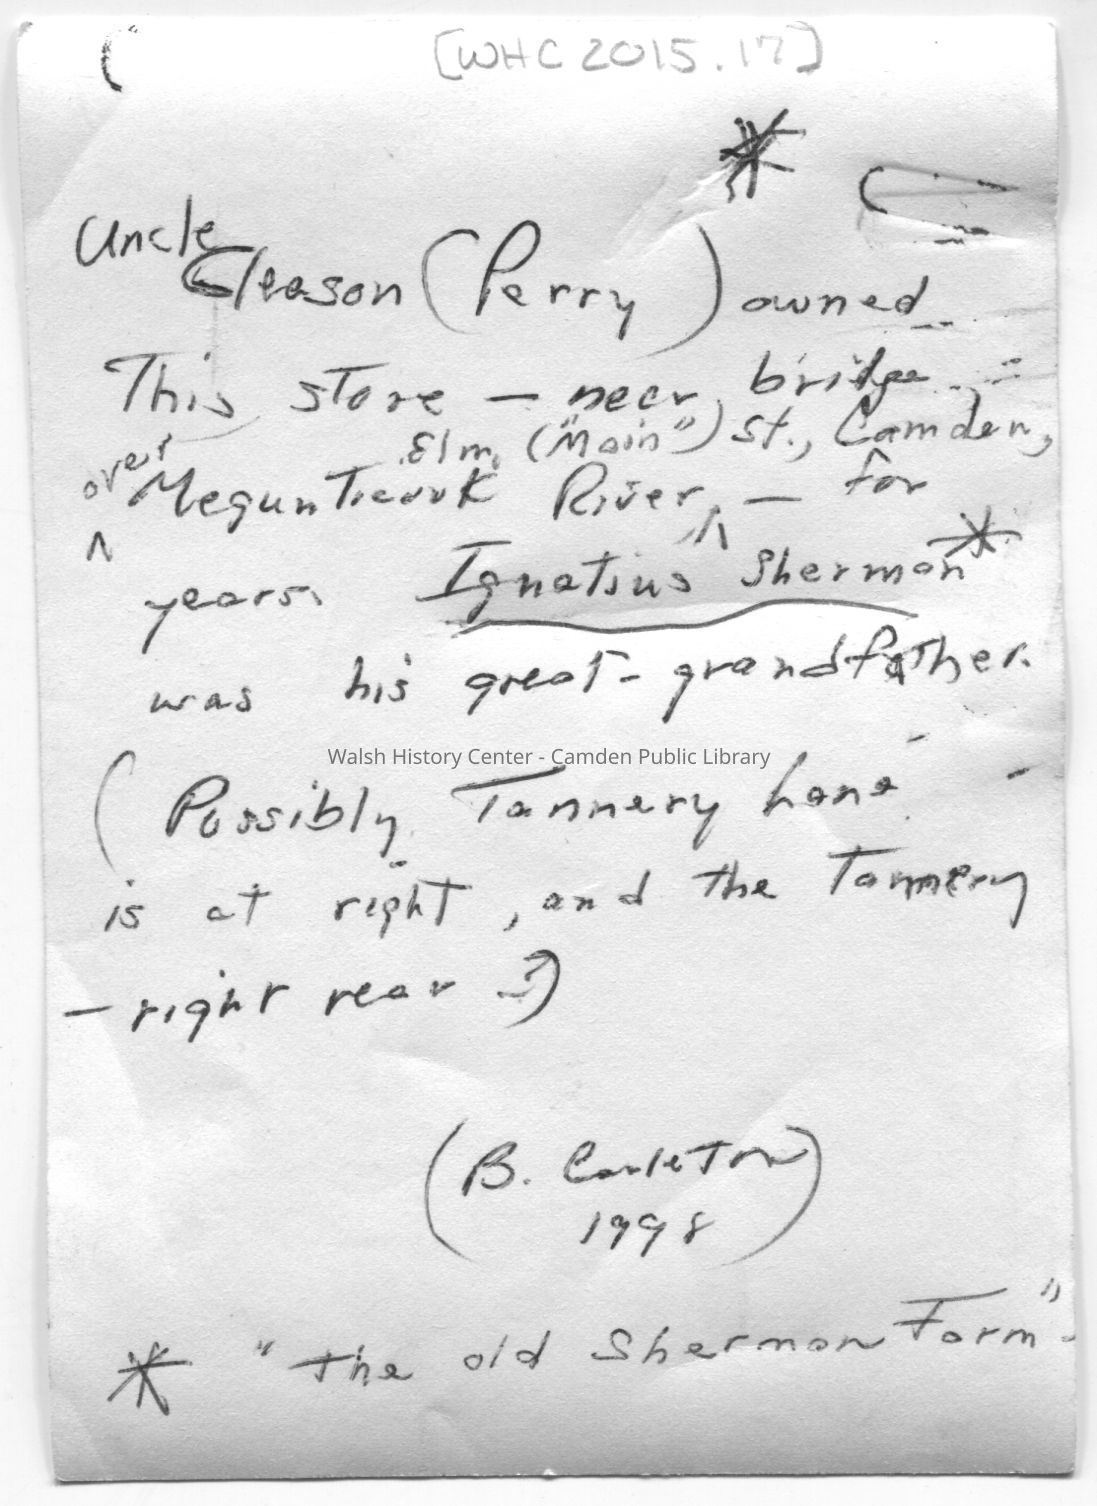 [WHC 2015.17]
*
Uncle
Gleason (Perry) owned
This store — near bridge
Elm ("Main") St., Camden,
over Megunticook River, — for
years. Ignatius Sherman*
was his great-grandfather.
Walsh History Center - Camden Public Library
(Possibly Tannery Lane
is at right, and the Tannery
— right rear ?)
(B. Carleton
1998)
* "The old Sherman Farm"